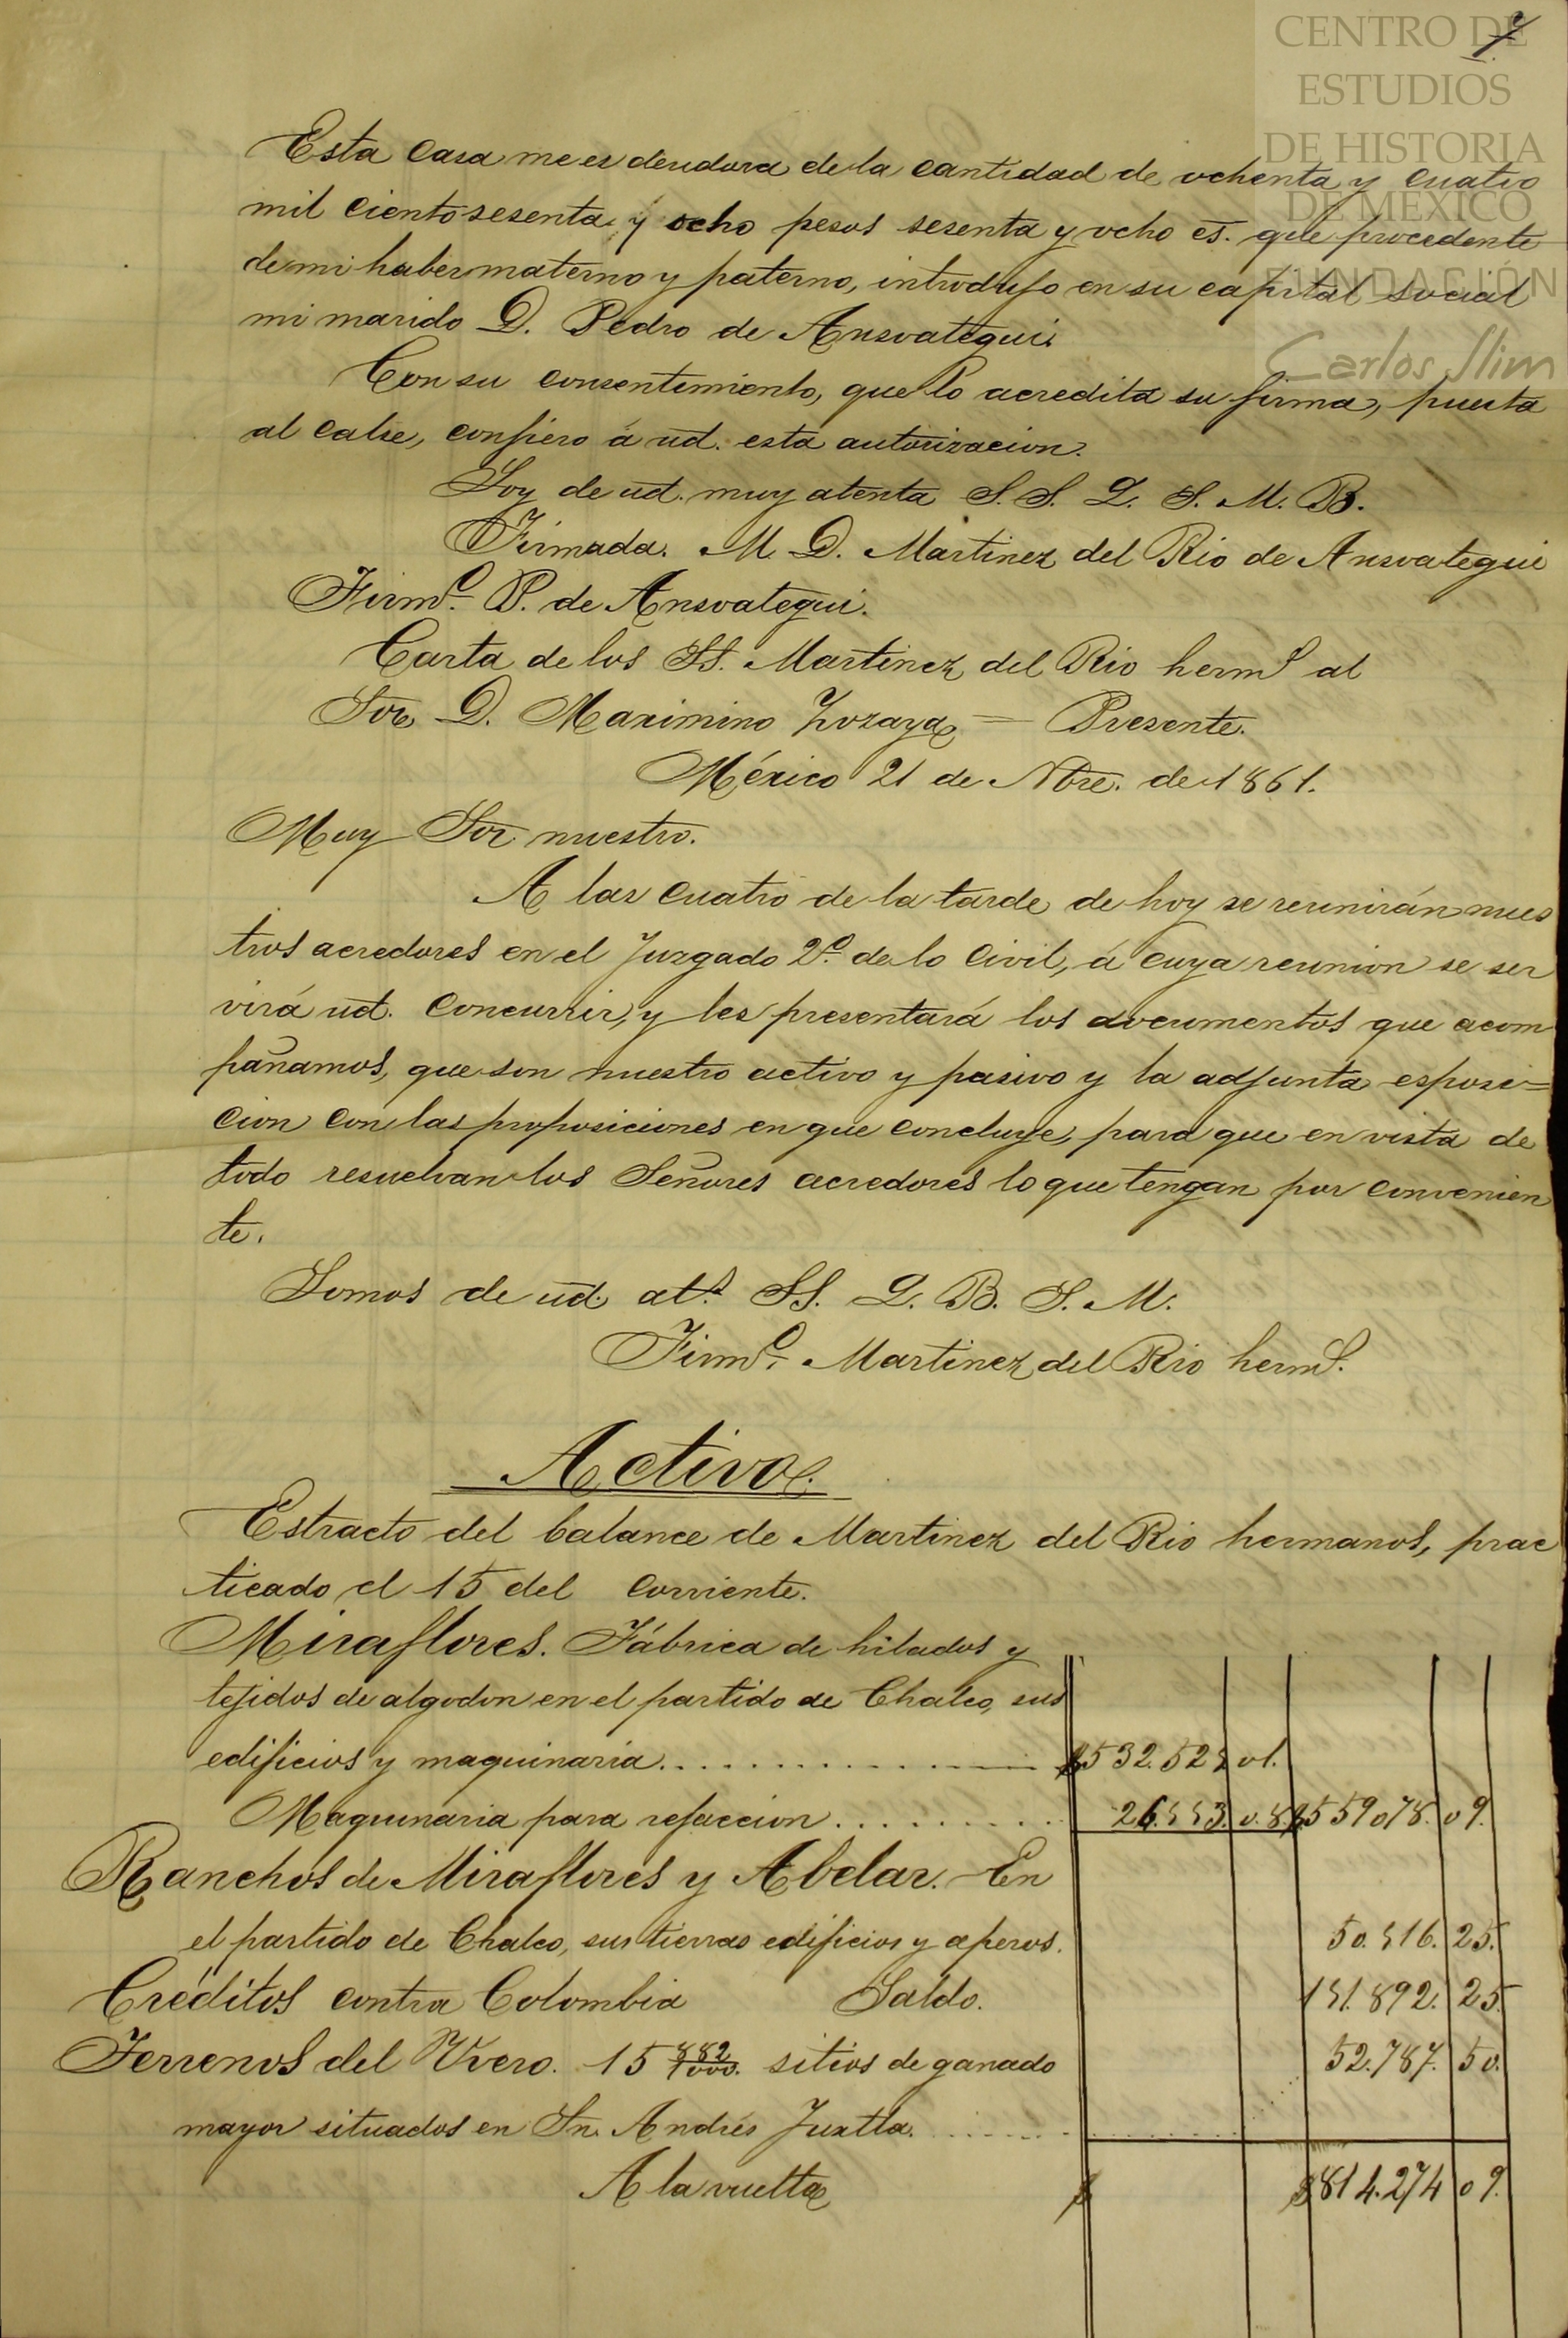 CENTRO DE
ESTUDIOS
DE HISTORIA
DE MÉXICO
FUNDACIÓN
Carlos Slim
Esta casa me es deudora de la cantidad de ochenta y cuatro
mil ciento sesenta y ocho pesos sesenta y ocho cs. que procedente
de mi haber materno y paterno, introdujo en su capital social
mi marido D. Pedro de Ansoategui.
Con su consentimiento, que lo acredita su firma, puesta
al calse, confiero á ud. esta autorizacion.
Soy de ud. muy atenta S. S. Q. S. M. B.
Firmada. M. D. Martinez del Rio de Ansoategui
Firmo. P. de Ansoategui.
Carta de los SS. Martinez del Rio herms al
Sor D. Maximino Zozaya = Presente.
México 21 de Nbre. de 1861.
Muy Sor nuestro.
A las cuatro de la tarde de hoy se reunirán nues
tros acredores en el Juzgado 2º. de lo Civil, á cuya reunion se ser
virá ud. concurrir, y les presentará los documentos que acom
pañamos, que son nuestro activo y pasivo y la adjunta esposi=
cion con las proposiciones en que concluye, para que en vista de
todo resuelvan los Señores acredores lo que tengan por convenien
te.
Somos de ud. ats. SS. Q. B. S. M.
Firmo. Martinez del Rio herms.
Activo.
Estracto del balance de Martinez del Rio hermanos, prac
ticado el 15 del corriente.
Miraflores. Fábrica de hilados y
tejidos de algodon en el partido de Chalco, sus
edificios y maquinaria. . . . . . . . . . $532.525 01.
Maquinaria para refaccion . . . . . . . . . 26.553. 08. $559078. 09.
Ranchos de Miraflores y Abelar. En
el partido de Chalco, sus tierras edificios y aperos. 50.516. 25.
Créditos contra Colombia Saldo. 151.892. 25.
Terrenos del Uvero. 15 882/1000. sitios de ganado 52.787. 50.
mayor situados en Sn. Andrés Tuxtla. . . . . . .
A la vuelta $ $814.274 09.